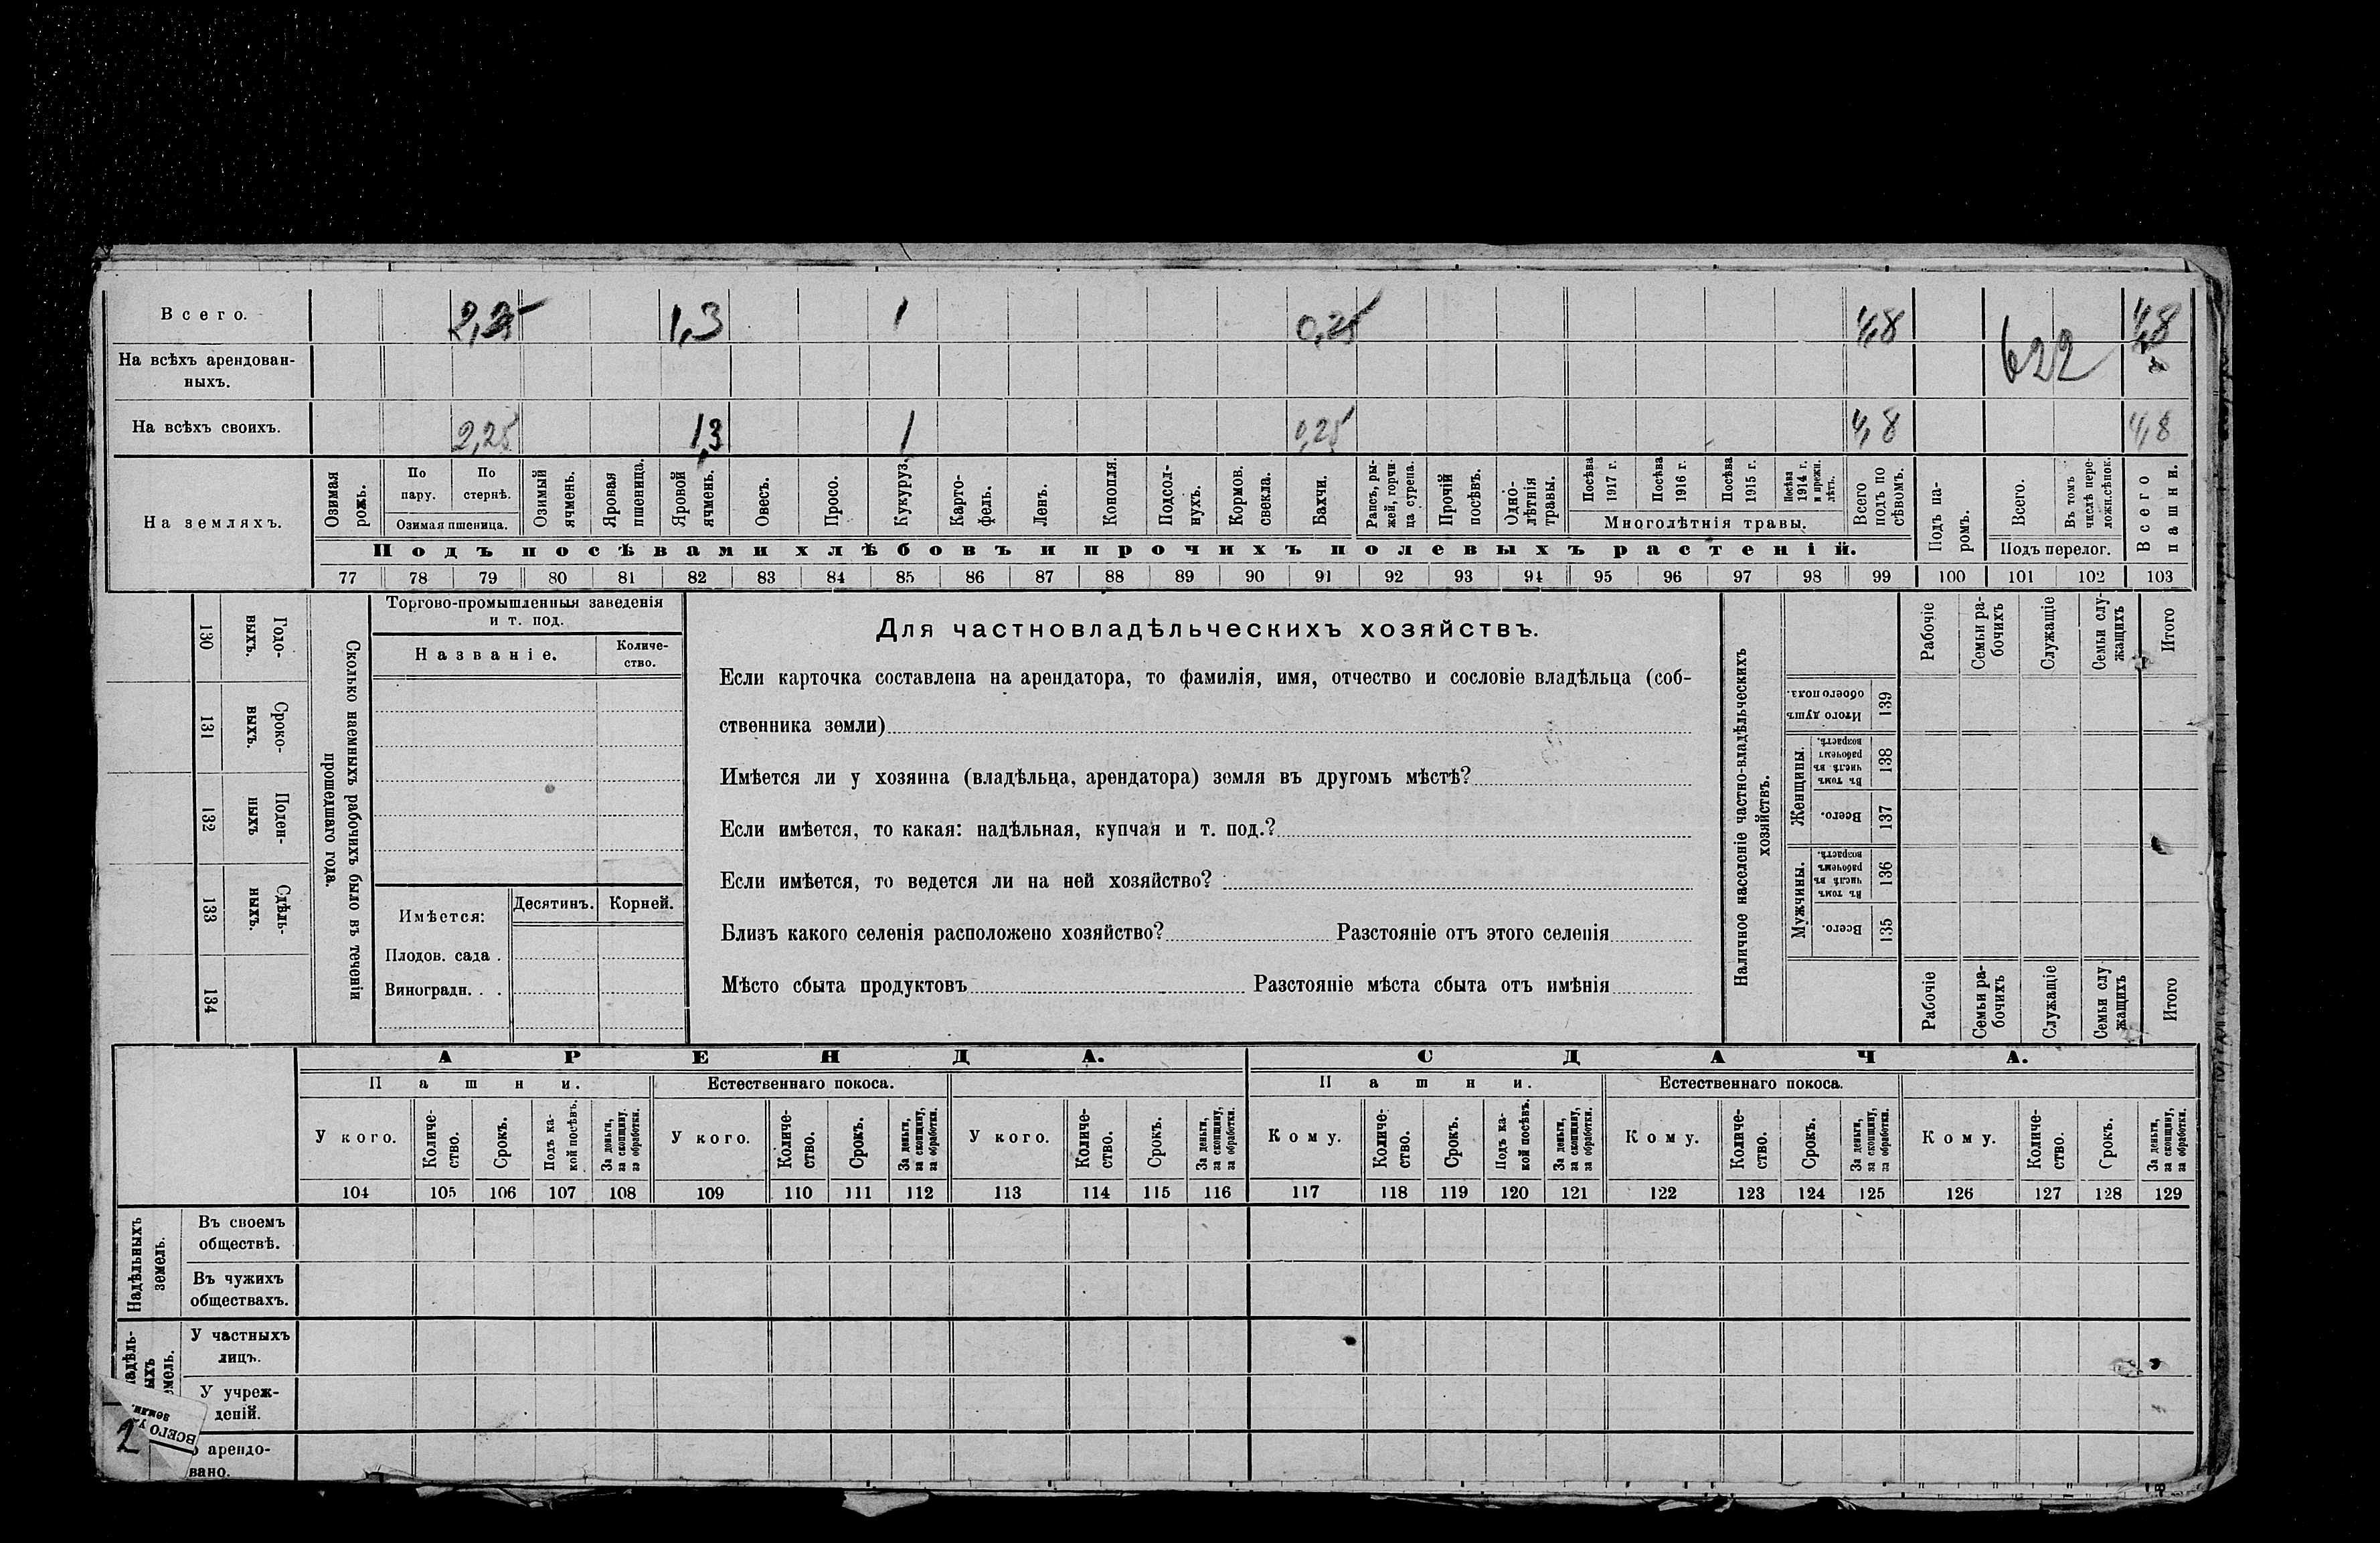 Всего. 2,25 1,3 1 0,25 4,8 4,8
На всѣхъ арендован-
ныхъ. 622
На всѣхъ своихъ. 2,25 1,3 1 0,25 4,8 4,8
На земляхъ.
Озимая рожь.
По пару.
По стернѣ.
Озимая пшеница.
Озимый ячмень.
Яровая пшеница.
Яровой ячмень.
Овесъ.
Просо.
Кукуруз.
Карто-
фель.
Ленъ.
Конопля.
Подсол-
нухъ.
Кормов.
свекла.
Бахчи.
Рапсъ, ры-
жей, горчи
ца сурепа.
Прочій
посѣвъ.
Одно-
лѣтнія
травы.
Посѣва
1917 г.
Посѣва
1916 г.
Посѣва
1915 г.
Посѣва
1914 г.
и прежн.
лѣтъ.
Многолѣтнія травы.
Всего
подъ по
сѣвомъ.
Подъ па-
ромъ.
Всего.
Въ томъ
числѣ пере-
ложн.сѣнок.
Подъ перелог.
Всего
пашни.
Подъ посѣвами хлѣбовъ и прочихъ полевыхъ растеній.
77 78 79 80 81 82 83 84 85 86 87 88 89 90 91 92 93 94 95 96 97 98 99 100 101 102 103
130 Годо-
выхъ.
131 Сроко-
выхъ.
132 Поден-
ныхъ
133 Сдѣль-
ныхъ.
134
Сколько наемныхъ рабочихъ было въ теченіи
прошедшаго года.
Торгово-промышленныя заведенія
и т. под.
Названіе.
Количе-
ство.
Имѣется: Десятинъ. Корней.
Плодов. сада .
Виноградн. . .
Для частновладѣльческихъ хозяйствъ.
Если карточка составлена на арендатора, то фамилія, имя, отчество и сословіе владѣльца (соб-
ственника земли)
Имѣется ли у хозяина (владѣльца, арендатора) земля въ другомъ мѣстѣ?
Если имѣется, то какая: надѣльная, купчая и т. под.?
Если имѣется, то ведется ли на ней хозяйство?
Близъ какого селенія расположено хозяйство? Разстояніе отъ этого селенія
Мѣсто сбыта продуктовъ Разстояніе мѣста сбыта отъ имѣнія
Наличное населеніе частно-владѣльческихъ
хозяйствъ.
Рабочіе
Семьи ра-
бочихъ
Служащіе
Семьи слу-
жащихъ
Итого
Итого душъ
обоего пола.
139
Женщины.
Въ томъ
числѣ въ
рабочемъ
возрастѣ.
138
Всего.
137
Мужчины.
Въ томъ
числѣ въ
рабочемъ
возрастѣ.
136
Всего.
135
Рабочіе
Семьи ра-
бочихъ
Служащіе
Семьи слу
жащихъ
Итого
АРЕНДА. СДАЧА.
Пашни. Естественнаго покоса. Пашни. Естественнаго покоса.
У кого.
Количе-
ство.
Срокъ.
Подъ ка-
кой посѣвъ.
За деньги,
за скопщину,
за обработки.
У кого.
Количе-
ство.
Срокъ.
За деньги,
за скопщину,
за обработки.
У кого.
Количе-
ство.
Срокъ.
За деньги,
за скопщину,
за обработки.
Кому.
Количе-
ство.
Срокъ.
Подъ ка-
кой посѣвъ.
За деньги,
за скопщину,
за обработки.
Кому.
Количе-
ство.
Срокъ.
За деньги,
за скопщину,
за обработки.
Кому.
Количе-
ство.
Срокъ.
За деньги,
за скопщину,
за обработки.
104 105 106 107 108 109 110 111 112 113 114 115 116 117 118 119 120 121 122 123 124 125 126 127 128 129
Надѣльныхъ
земель.
Въ своемъ
обществѣ.
Въ чужихъ
обществахъ.
У частныхъ
лицъ.
У учреж-
деній.
арендо-
вано.
земли.
ВСЕГО у
2